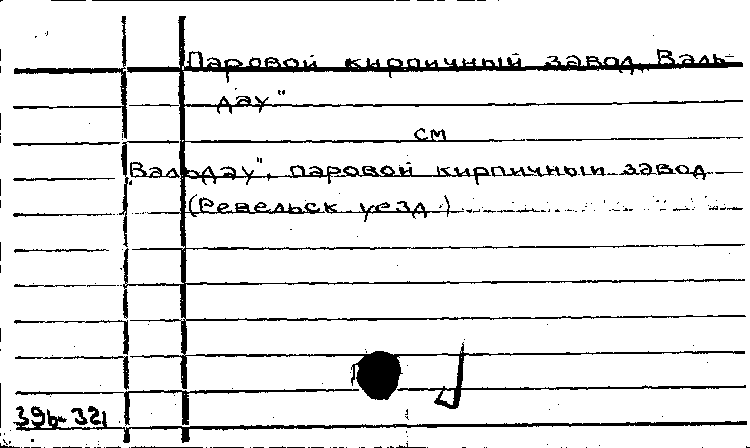 Паровой кирпичный завод „Валь-
дау"
см
„Вальдау", паровой кирпичный завод
(Ревельск уезд.)
39б-321